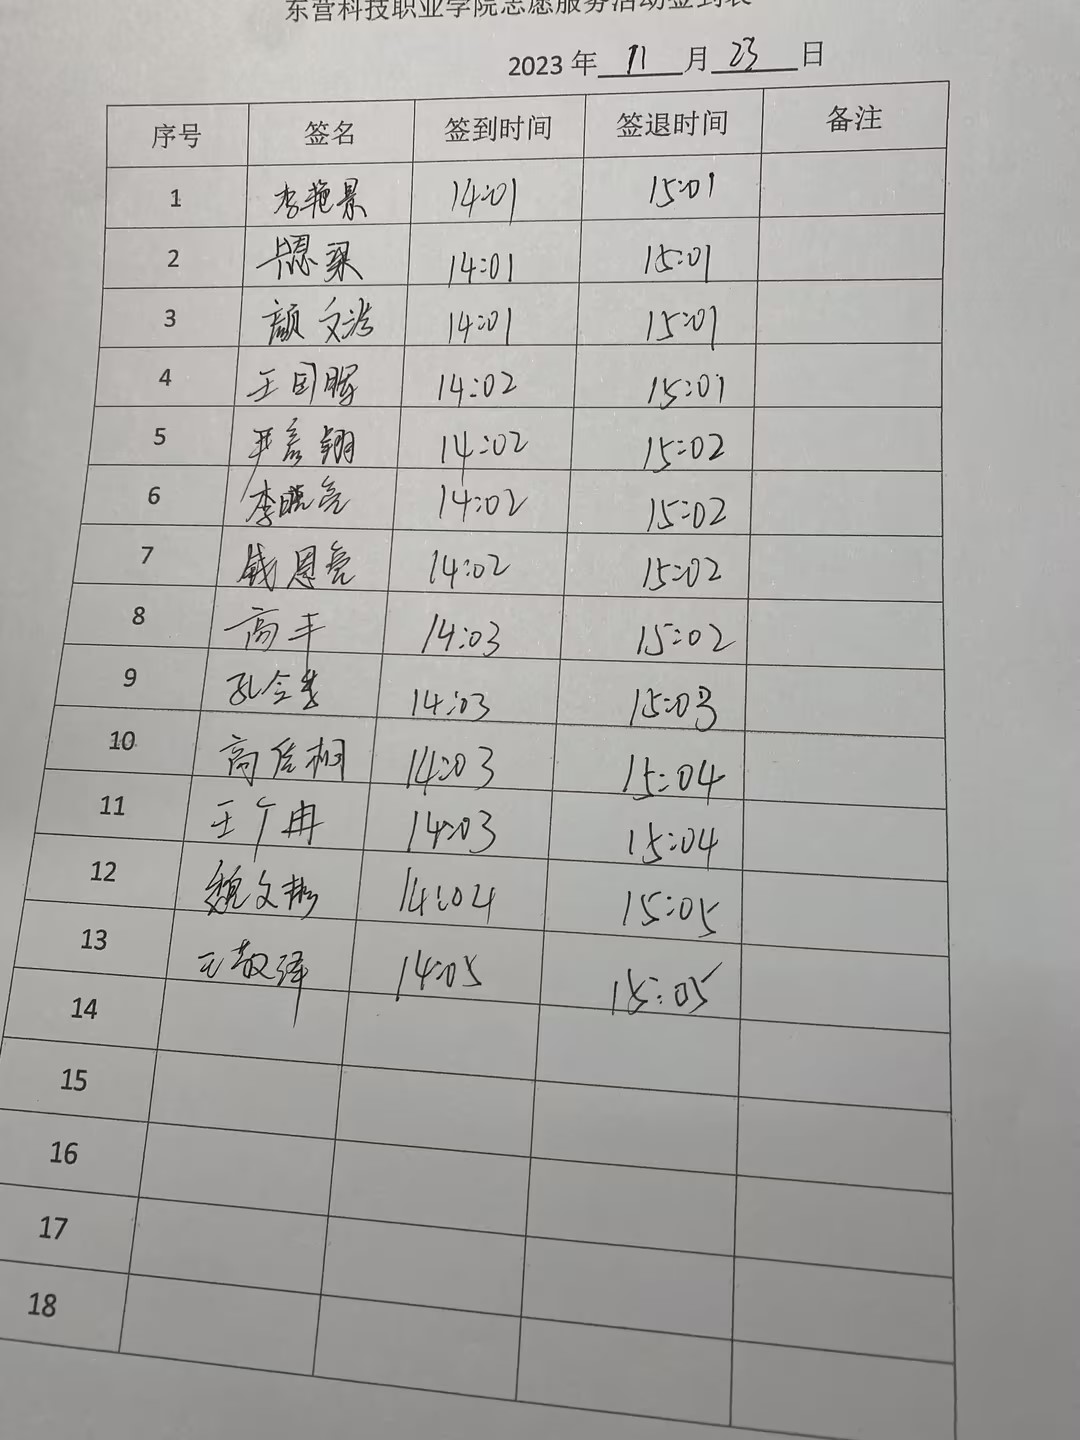 东营科技职业学院志愿服务活动签到表
2023 年 11 月 23 日
序号 签名 签到时间 签退时间 备注
1 李艳景 14:01 15:01
2 14:01 15:01
3 颜文浩 14:01 15:01
4 王国晖 14:02 15:01
5 严彦翔 14:02 15:02
6 李晓亮 14:02 15:02
7 钱恩亮 14:02 15:02
8 高丰 14:03 15:02
9 14:03 15:03
10 高佳桐 14:03 15:04
11 14:03 15:04
12 魏文彬 14:04 15:05
13 王敬泽 14:05 15:05
14
15
16
17
18